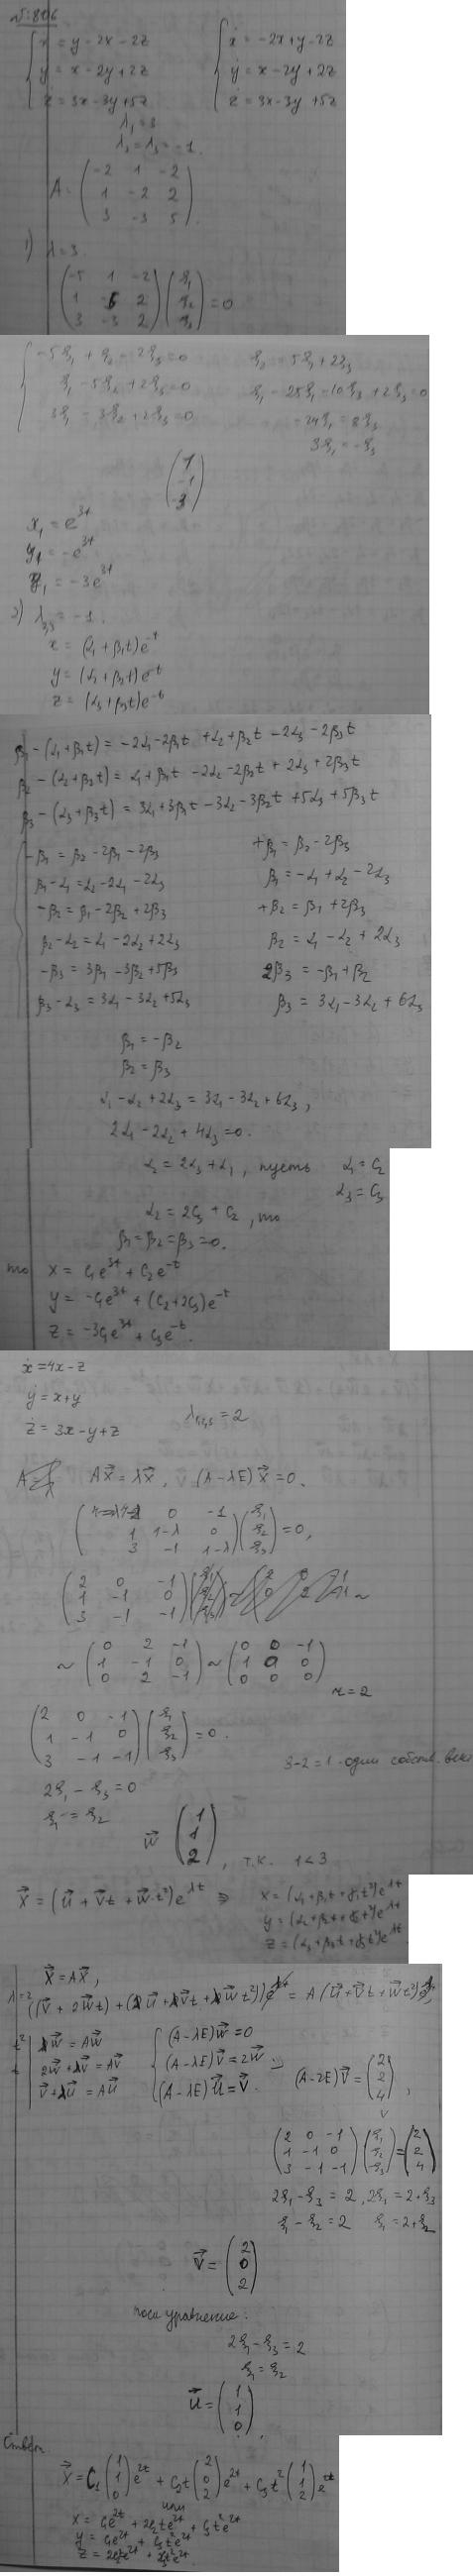 №806
ẋ = y - 2x - 2z
ẏ = x - 2y + 2z
ż = 3x - 3y + 5z
ẋ = -2x + y - 2z
ẏ = x - 2y + 2z
ż = 3x - 3y + 5z
λ₁ = 3
λ₂ = λ₃ = -1.
A = ( -2 1 -2
1 -2 2
3 -3 5 )
1) λ = 3.
( -5 1 -2
1 -5 2
3 -3 2 ) ( ξ₁ ξ₂ ξ₃ ) = 0
-5ξ₁ + ξ₂ - 2ξ₃ = 0
ξ₁ - 5ξ₂ + 2ξ₃ = 0
3ξ₁ - 3ξ₂ + 2ξ₃ = 0
ξ₂ = +5ξ₁ + 2ξ₃
ξ₁ - 25ξ₁ - 10ξ₃ + 2ξ₃ = 0
-24ξ₁ = 8ξ₃
3ξ₁ = -ξ₃
( 1
-1
-3 )
x₁ = e^3t
y₁ = -e^3t
z₁ = -3e^3t
2) λ₂,₃ = -1.
x = (α₁ + β₁t)e^-t
y = (α₂ + β₂t)e^-t
z = (α₃ + β₃t)e^-t
β₁ - (α₁ + β₁t) = -2α₁ - 2β₁t + α₂ + β₂t - 2α₃ - 2β₃t
β₂ - (α₂ + β₂t) = α₁ + β₁t - 2α₂ - 2β₂t + 2α₃ + 2β₃t
β₃ - (α₃ + β₃t) = 3α₁ + 3β₁t - 3α₂ - 3β₂t + 5α₃ + 5β₃t
-β₁ = β₂ - 2β₁ - 2β₃
β₁ - α₁ = α₂ - 2α₁ - 2α₃
-β₂ = β₁ - 2β₂ + 2β₃
β₂ - α₂ = α₁ - 2α₂ + 2α₃
-β₃ = 3β₁ - 3β₂ + 5β₃
β₃ - α₃ = 3α₁ - 3α₂ + 5α₃
+β₁ = β₂ - 2β₃
β₁ = -α₁ + α₂ - 2α₃
+β₂ = β₁ + 2β₃
β₂ = α₁ - α₂ + 2α₃
2β₃ = -β₁ + β₂
β₃ = 3α₁ - 3α₂ + 6α₃
β₁ = -β₂
β₂ = β₃
α₁ - α₂ + 2α₃ = 3α₁ - 3α₂ + 6α₃,
2α₁ - 2α₂ + 4α₃ = 0.
α₂ = 2α₃ + α₁, пусть α₁ = C₂
α₃ = C₃
α₂ = 2C₃ + C₂, то
β₁ = β₂ = β₃ = 0.
то x = C₁e^3t + C₂e^-t
y = -C₁e^3t + (C₂ + 2C₃)e^-t
z = -3C₁e^3t + C₃e^-t.
ẋ = 4x - z
ẏ = x + y
ż = 3x - y + z
λ₁,₂,₃ = 2
AX⃗ = λX⃗, (A - λE)X⃗ = 0.
( 4-λ 0 -1
1 1-λ 0
3 -1 1-λ ) ( ξ₁ ξ₂ ξ₃ ) = 0,
( 2 0 -1
1 -1 0
3 -1 -1 ) ~
~ ( 0 2 -1
1 -1 0
0 2 -1 ) ~ ( 0 0 -1
1 0 0
0 0 0 )
r = 2
( 2 0 -1
1 -1 0
3 -1 -1 ) ( ξ₁ ξ₂ ξ₃ ) = 0.
3-2 = 1 - один собств. век
2ξ₁ - ξ₃ = 0
ξ₁ = ξ₂
w⃗ ( 1
1
2 ), т.к. 1 < 3
X⃗ = (u⃗ + v⃗t + w⃗t²)e^λt ⇒
x = (α₁ + β₁t + γ₁t²)e^λt
y = (α₂ + β₂t + γ₂t²)e^λt
z = (α₃ + β₃t + γ₃t²)e^λt.
Ẋ⃗ = AX⃗,
λ=2
((v⃗ + 2w⃗t) + (λu⃗ + λv⃗t + λw⃗t²))e^λt = A(u⃗ + v⃗t + w⃗t²)e^λt,
t² | λw⃗ = Aw⃗
t | 2w⃗ + λv⃗ = Av⃗
v⃗ + λu⃗ = Au⃗
(A - λE)w⃗ = 0
(A - λE)v⃗ = 2w⃗
(A - λE)u⃗ = v⃗.
(A - 2E)v⃗ = ( 2
2
4 ),
( 2 0 -1
1 -1 0
3 -1 -1 ) ( ξ₁ ξ₂ ξ₃ ) = ( 2 2 4 )
2ξ₁ - ξ₃ = 2, 2ξ₁ = 2 + ξ₃
ξ₁ - ξ₂ = 2 ξ₁ = 2 + ξ₂
v⃗ = ( 2
0
2 )
уравнение:
2ξ₁ - ξ₃ = 2
ξ₁ = ξ₂
u⃗ = ( 1
1
0 ).
Ответ:
X⃗ = C₁( 1 1 0 )e^2t + C₂t( 2 0 2 )e^2t + C₃t²( 1 1 2 )e^2t
или
x = C₁e^2t + 2C₂te^2t + C₃t²e^2t
y = C₁e^2t + C₃t²e^2t
z = 2C₂te^2t + 2C₃t²e^2t